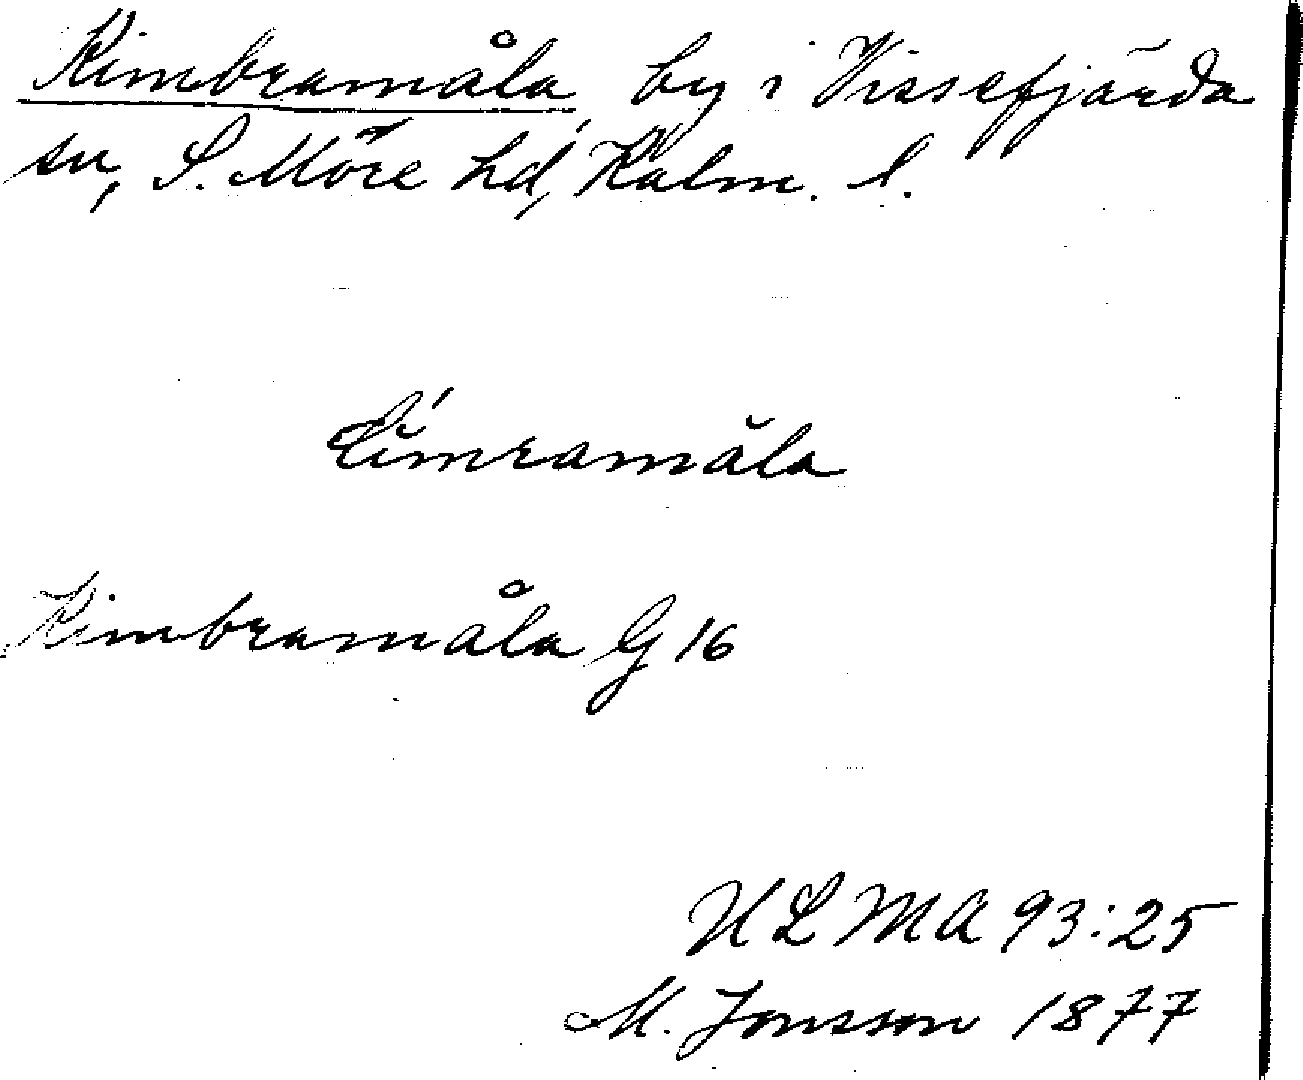 Kimbramåla, by i Vissefjärda
sn, S. Möre hd, Kalm. l.
Kimbramåla G 16
ULMA 93:25
M. Jonsson 1877